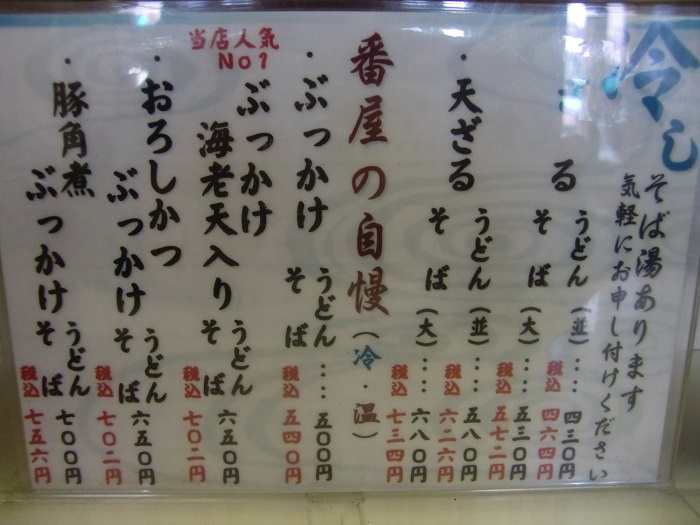 冷し
そば湯あります
気軽にお申し付けください
る
うどん(並)‥‥四三〇円
税込 四六四円
そば(大)‥‥五三〇円
税込 五七二円
・天ざる
うどん(並)‥‥五八〇円
税込 六二六円
そば(大)‥‥六八〇円
税込 七三四円
番屋の自慢(冷・温)
・ぶっかけ
うどん‥‥五〇〇円
そば
税込 五四〇円
当店人気
No1
ぶっかけ
海老天入り
うどん 六五〇円
そば
税込 七〇二円
・おろしかつ
ぶっかけ
うどん 六五〇円
そば
税込 七〇二円
・豚角煮
ぶっかけ
うどん 七〇〇円
そば
税込 七五六円